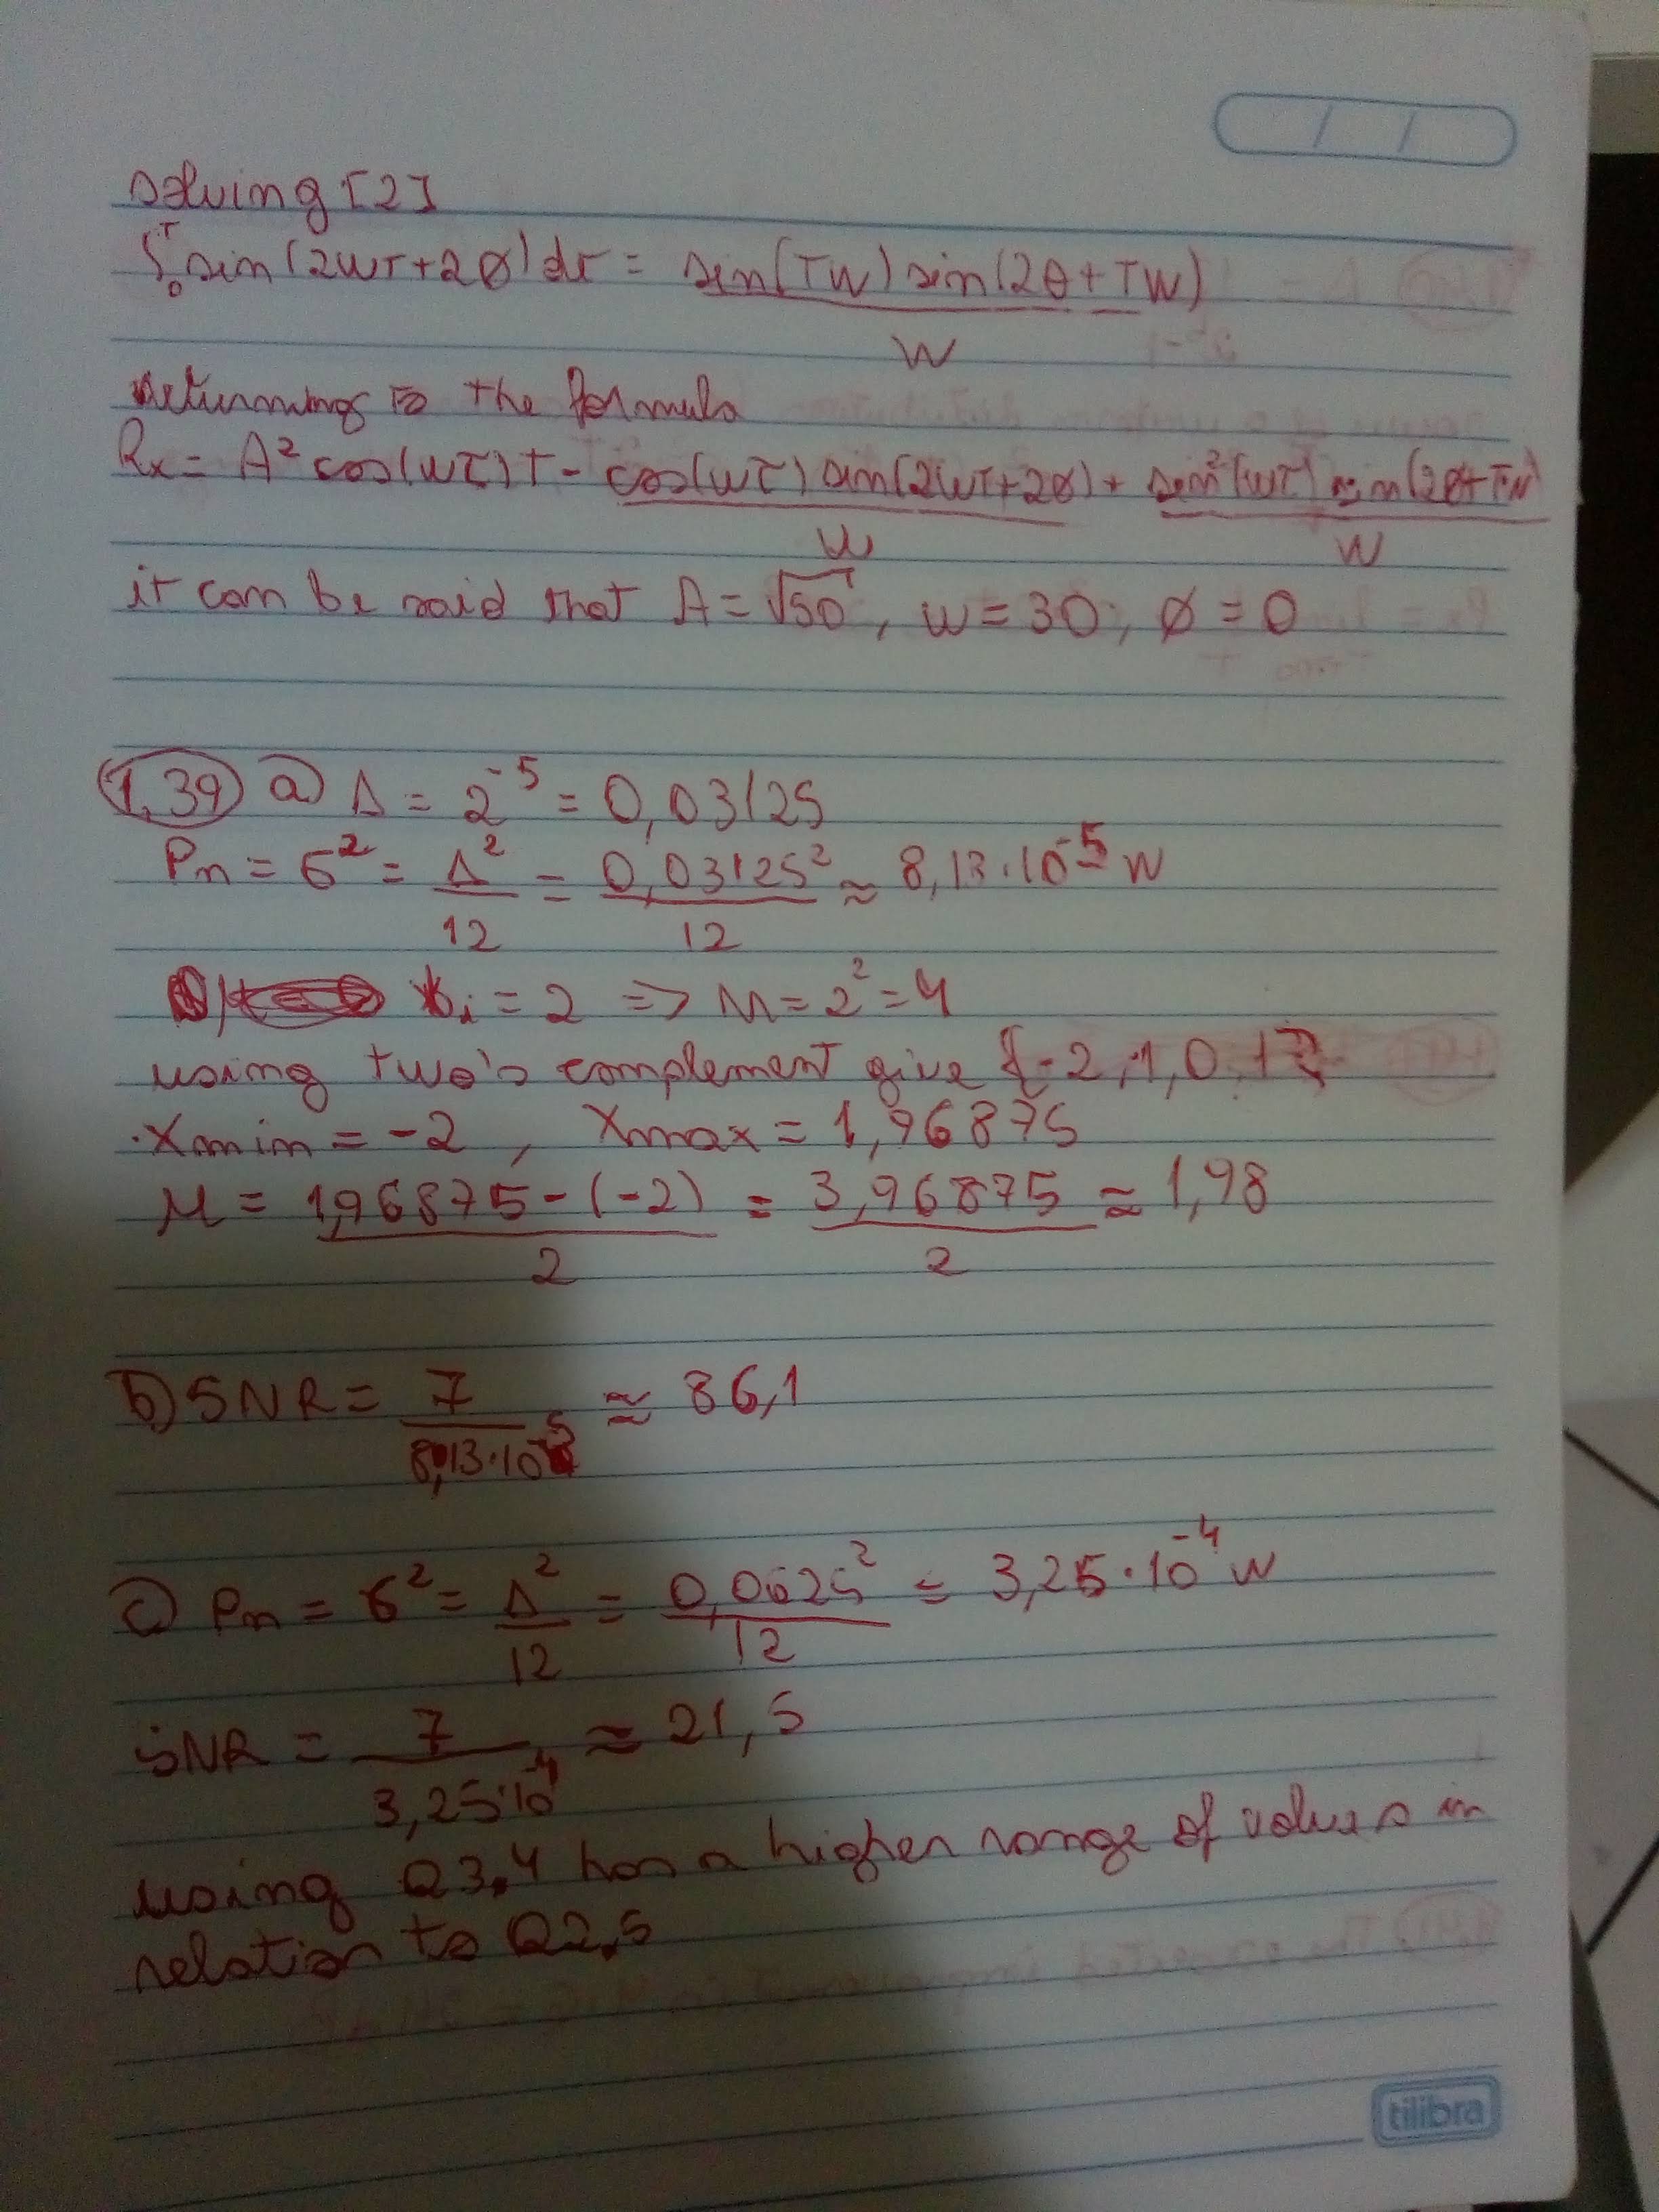 solving [2]
∫₀ᵀ sin(2wτ+2ø)dτ = sin(TW) sin(2θ+TW)
W
returning to the formula
Rx = A² cos(wτ)T - cos(wτ) sin(2wτ+2ø) + sin²(wτ) sin(2ø+TW)
W W
it can be said that A = √50, w = 30, ø = 0
1,39 a) Δ = 2⁻⁵ = 0,03125
Pn = 6² = Δ² = 0,03125² ≈ 8,13.10⁻⁵ W
12 12
i = 2 => M = 2² = 4
using two's complement give {-2,-1,0,1}
.Xmin = -2 , Xmax = 1,96875
M = 1,96875-(-2) = 3,96875 ≈ 1,98
2 2
b) SNR = 7 ≈ 86,1
8,13.10⁻⁵
c) Pn = 6² = Δ² = 0,0625² = 3,25.10⁻⁴ W
12 12
SNR = 7 ≈ 21,5
3,25.10⁻⁴
using Q3.4 has a higher range of values in
relation to Q2.5
tilibra